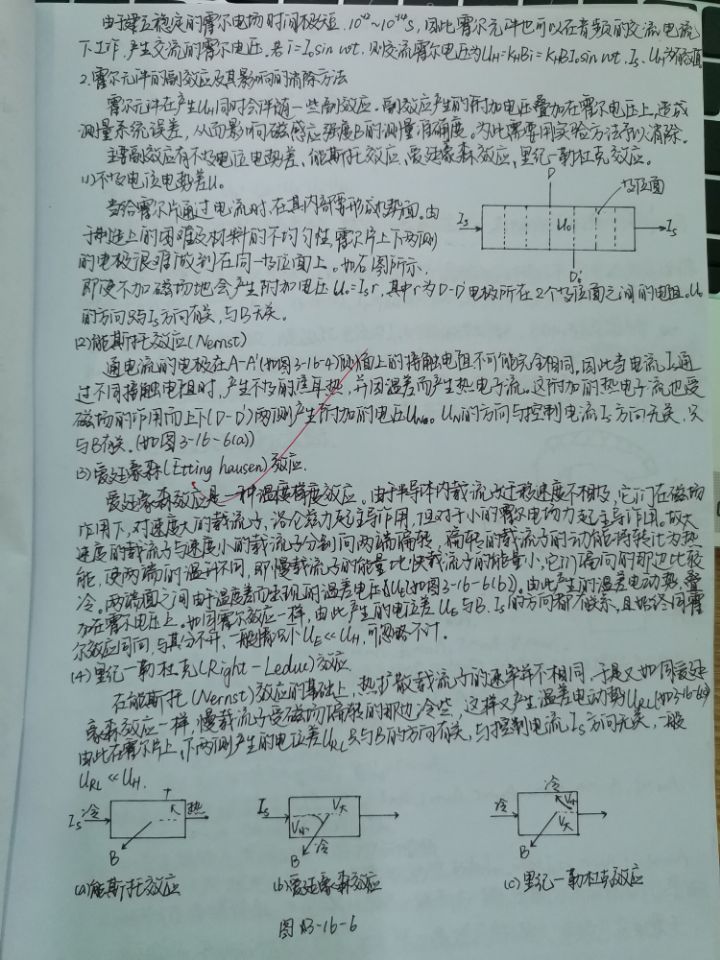 由于建立稳定的霍尔电场时间极短,10⁻¹²~10⁻¹⁴s,因此霍尔元件也可以在音频的交流电流
下工作,产生交流的霍尔电压,若i=I₀sin wt,则交流霍尔电压为UH=KHBi=KHBI₀sin wt,Is、UH为有效值
2.霍尔元件的副效应及其影响的消除方法
霍尔元件在产生UH同时会伴随一些副效应。副效应产生的附加电压叠加在霍尔电压上,造成
测量系统误差,从而影响磁感应强度B的测量准确度。为此需要用实验方法予以消除。
主要副效应有不等电位电势差、能斯托效应、爱廷豪森效应、里纪一勒杜克效应。
(1)不等电位电势差U₀
当给霍尔片通过电流时,在其内部要形成等势面。由
于制造上的困难及材料的不均匀性,霍尔片上下两侧
的电极很难做到在同一等位面上。如右图所示,
D
等位面
Is
U₀
Is
D'
即使不加磁场地会产生附加电压U₀=Isr,其中r为D-D'电极所在2个等位面之间的电阻。U₀
的方向只与Is方向有关,与B无关。
(2)能斯托效应(Nernst)
通电流的电极在A-A'(如图3-16-4)的面上的接触电阻不可能完全相同,因此当电流Is通
过不同接触电阻时,产生不等的焦耳热,并因温差而产生热电子流。这附加的热电子流也受
磁场的作用而上下(D-D')两侧产生附加的电压UN。UN的方向与控制电流Is方向无关,只
与B有关。(如图3-16-6(a))
(3)爱廷豪森(Etting hausen)效应.
爱廷豪森效应是一种温度梯度效应。由于半导体内载流子迁移速度不相等,它们在磁场
作用下,对速度大的载流子,洛伦兹力起主导作用,但对于小的霍尔电场力起主导作用。故大
速度的载流子与速度小的载流子分别向两端偏转,偏转的载流子的动能将转化为热
能,使两端的温升不同,即慢载流子的能量比快载流子的能量小,它们偏向的那边比较
冷。两端面之间由于温度差而出现的温差电压UE(如图3-16-6(b))。由此产生的温差电动势,叠
加在霍尔电压上。如同霍尔效应一样,由此产生的电位差UE与B、Is的方向都有关系,且始终同霍
尔效应同向,与其分不开,一般情况下UE≪UH,可忽略不计。
(4)里纪一勒杜克(Right-Leduc)效应
在能斯托(Nernst)效应的基础上,热扩散载流子的速率并不相同,于是又如同爱廷
豪森效应一样,慢载流子受磁场偏转的那边冷些,这样又产生温差电动势URL(如3-16-6(c))
由此在霍尔片上、下两侧产生的电位差URL只与B的方向有关,与控制电流Is方向无关,一般
URL≪UH.
Is 冷 + 热
B
(a)能斯托效应
Is V小 V大
B 冷
(b)爱廷豪森效应
冷 冷 V小
V大
B
(c)里纪一勒杜克效应
图3-16-6